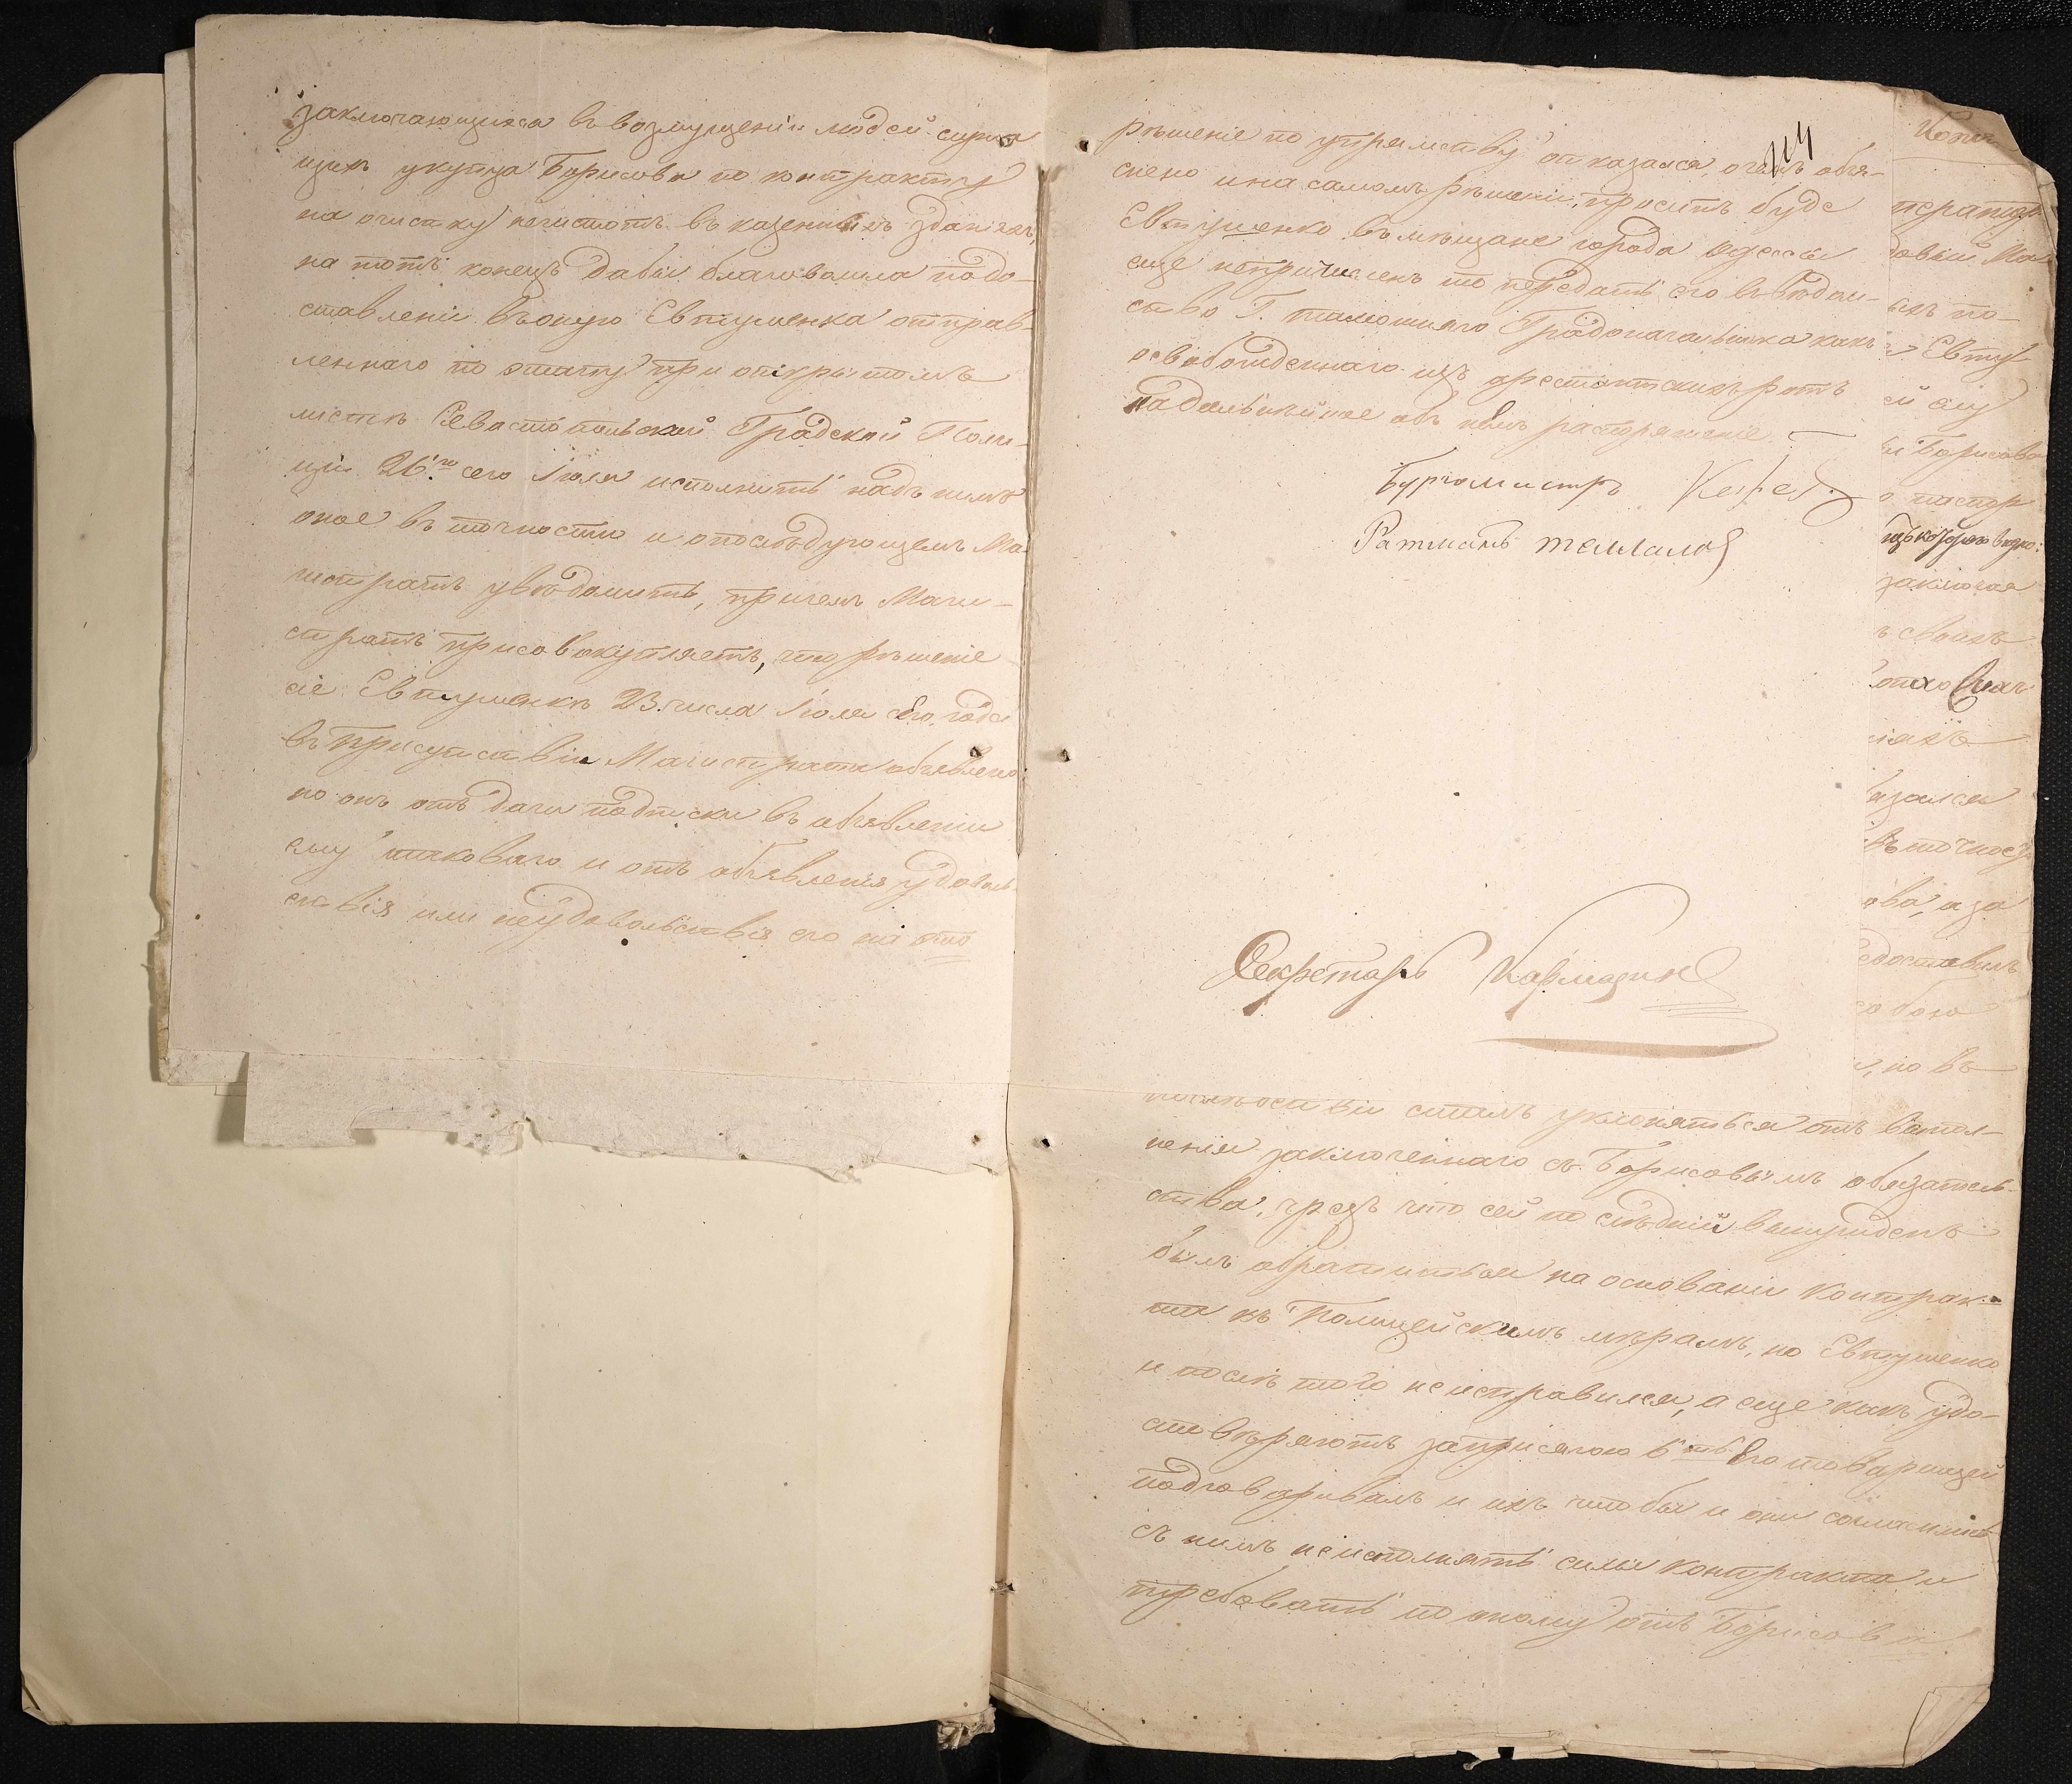 заключающихся въ возмущеніи людей служа
щихъ у купца Борисова по контракту
на очистку нечистотъ въ казенныхъ зданіяхъ,
на тотъ конецъ дабы благоволила по до-
ставленіи въ оную Евтушенка отправ-
леннаго по этапу при открытомъ
листѣ Севастопольской Градской Поли-
ціи 26.го сего Іюля исполнить надъ нимъ
оное въ точности и о послѣдующемъ Ма
гистратъ увѣдомить, причемъ Маги-
стратъ присовокупляетъ, что рѣшеніе
сіе Евтушенкѣ 23. числа Іюля сего года
въ присутствіи Магистрата объявлено
но онъ отъ дачи подписки въ объявленіи
ему таковаго и отъ объявленія удоволь-
ствія или неудовольствія его на это
рѣшеніе по упрямству отказался, о чемъ объя-
снено и на самомъ рѣшеніи, проситъ буде
Евтушенко въ мѣщане города Одессы
еще непричисленъ то передать его въ вѣдом-
ство Г. тамошняго Градоначальника какъ
освобожденнаго изъ арестантскихъ ротъ
на дальнѣйшее объ немъ распоряженіе.
Бургомистръ
Ратманъ
Секретарь Кармазинъ
Евту
ей ему
Борисова
заключая
своихъ
азался
въ точнос
ова, а за
собою
но въ
сталъ уклоняться отъ выпол-
ненія заключеннаго съ Борисовымъ обязатель-
ства, чрезъ что сей послѣдній вынужденъ
былъ обратиться на основаніи контрак-
та къ Полицейскимъ мѣрамъ, но Евтушенко
и послѣ того не исправился, а еще какъ удо-
стовѣряютъ за присягою 6ть его товарищей
подговаривалъ и ихъ чтобы и они согласились
съ нимъ не исполнять силы контракта и
требовать по оному отъ Борисова